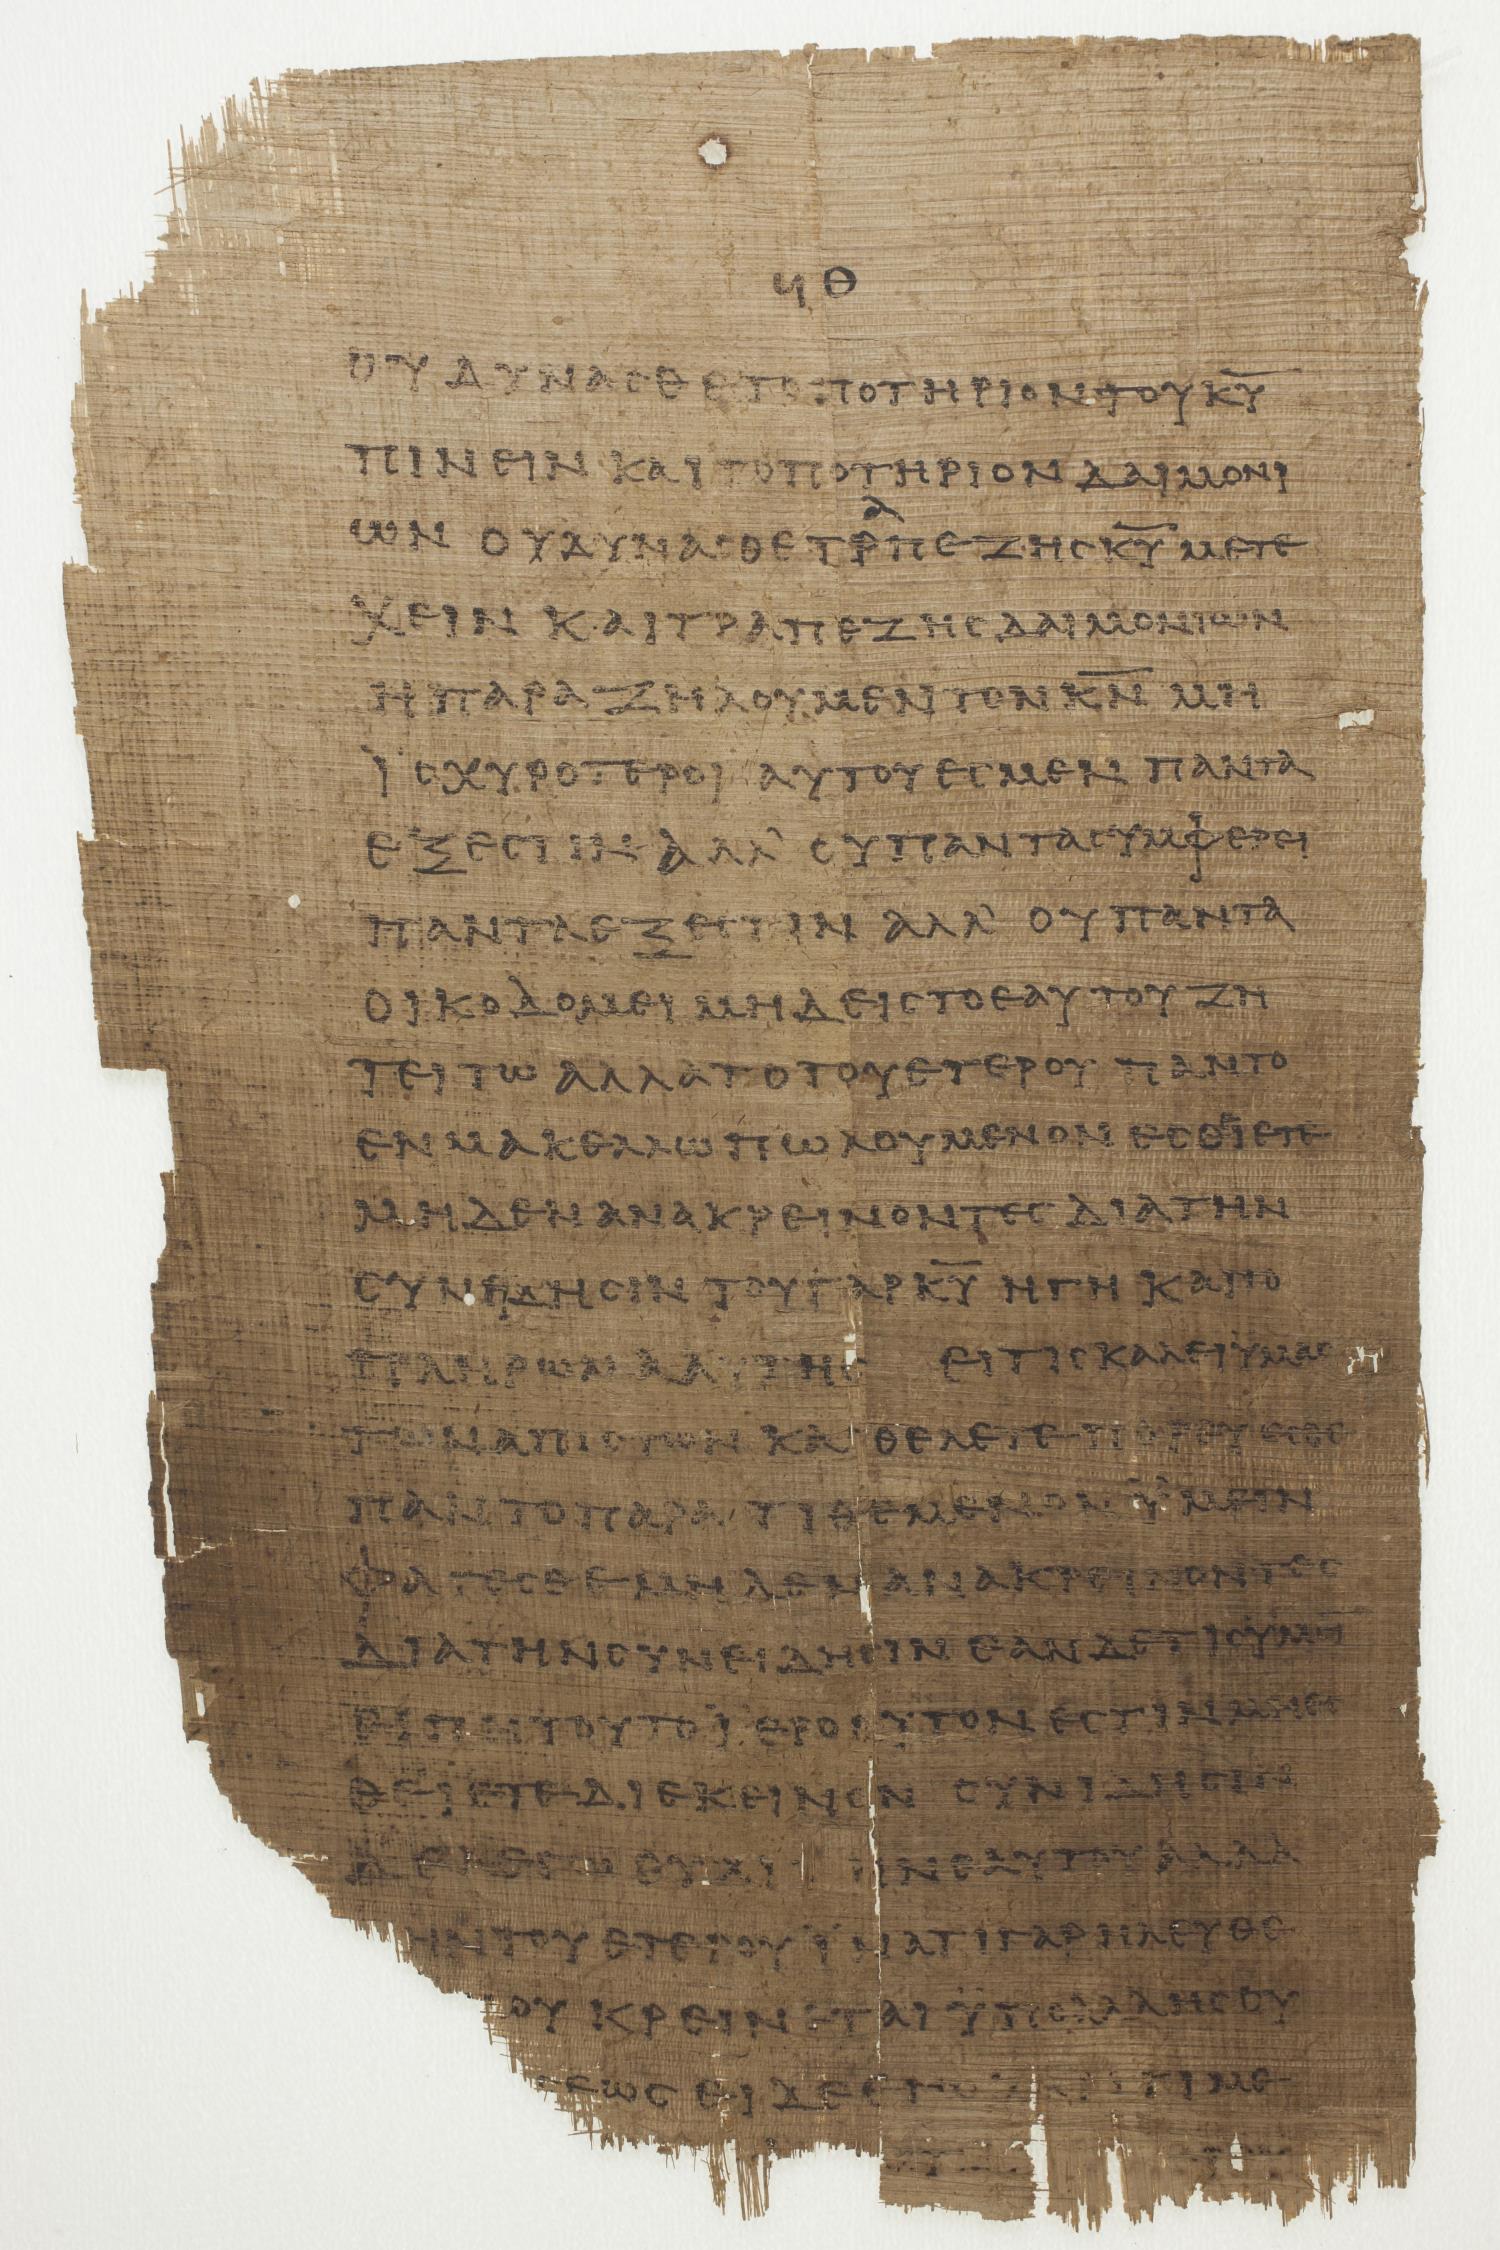 ϥθ
ου δυνασθε το ποτηριον του κ̅υ̅
πινειν και το ποτηριον δαιμονι
ων ου δυνασθε τραπεζης κ̅υ̅ μετε
χειν και τραπεζης δαιμονιων
η παραζηλουμεν τον κ̅ν̅ μη
ϊσχυροτεροι αυτου εσμεν παντα
εξεστιν αλλ’ ου παντα συμφερει
παντα εξεστιν αλλ’ ου παντα
οικοδομει μηδεις το εαυτου ζη
τειτω αλλα το του ετερου παν το
εν μακελλω πωλουμενον εσθιετε
μηδεν ανακρεινοντες δια την
συνειδησιν του γαρ κ̅υ̅ η γη κα το
πληρωμα αυτης ει τις καλει ϋμας
των απιστων και θελετε πορευεσθε
παν το παρατιθεμενον ϋμειν
φατεσθε μηδεν ανακρεινοντες
δια την συνειδησιν εαν δε τις ϋμι̅
ειπη τουτο ϊεροθυτον εστιν μη εσ
θειετε δι εκεινον συνιδησιν
δε λεγω ουχι την εαυτου αλλα
ην του ετερου ϊνα τι γαρ η λευθε
ου κρεινεται ϋπο αλλης ου
εως ει δε εγω τι με